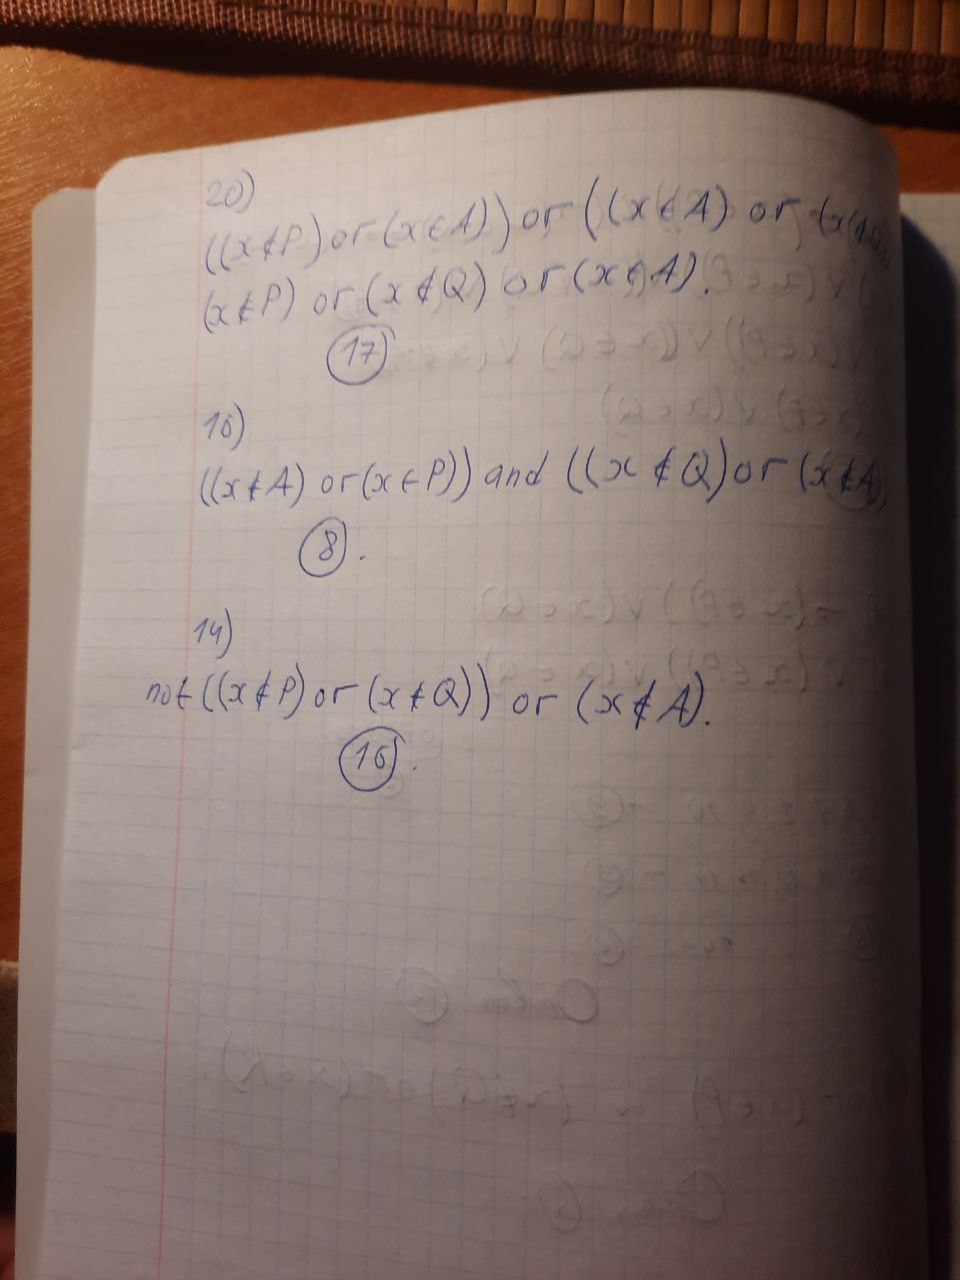 20)
((x∉P) or (x∈A)) or ((x∈A) or (x∉Q)
(x∉P) or (x∉Q) or (x∈A).
17
16)
((x∉A) or (x∈P)) and ((x∉Q) or (x∉A)
8.
14)
not ((x∉P) or (x∉Q)) or (x∉A).
16.